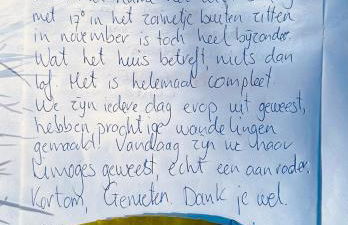 met 17° in het zonnetje buiten zitten
in november is toch heel bijzonder.
Wat het huis betreft, niets dan
lof. Het is helemaal compleet.
We zijn iedere dag erop uit geweest,
hebben prachtige wandelingen
gemaakt! Vandaag zijn we naar
Limoges geweest, echt een aanrader.
Kortom, Genieten. Dank je wel.